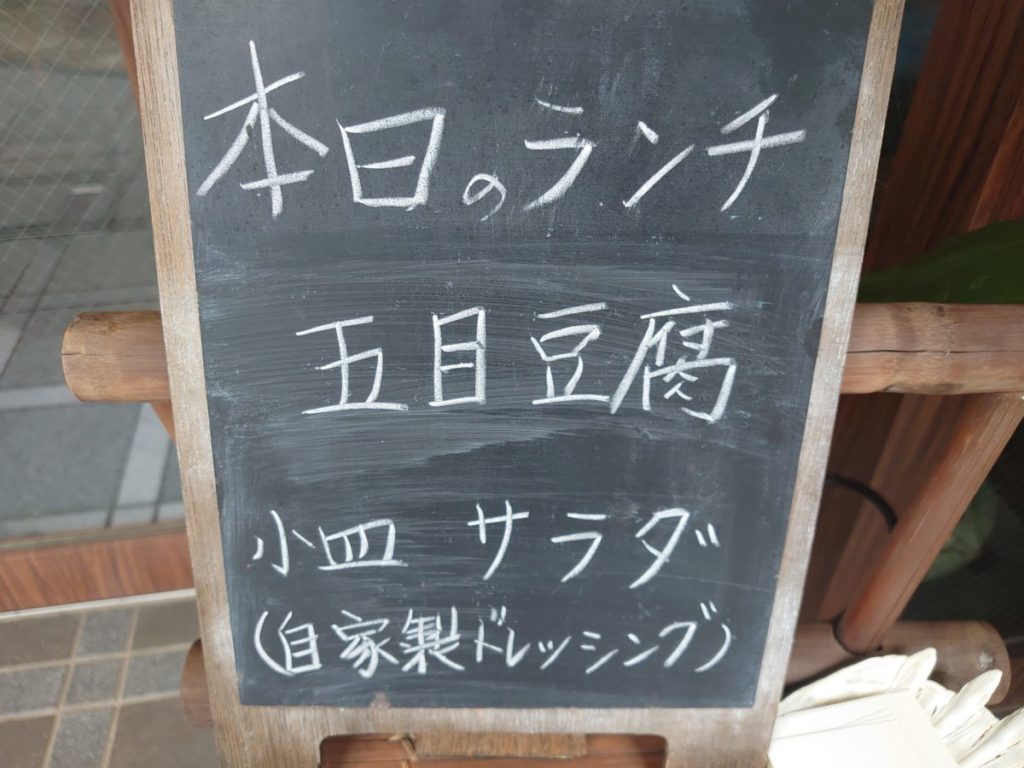 本日のランチ
五目豆腐
小皿 サラダ
(自家製ドレッシング)